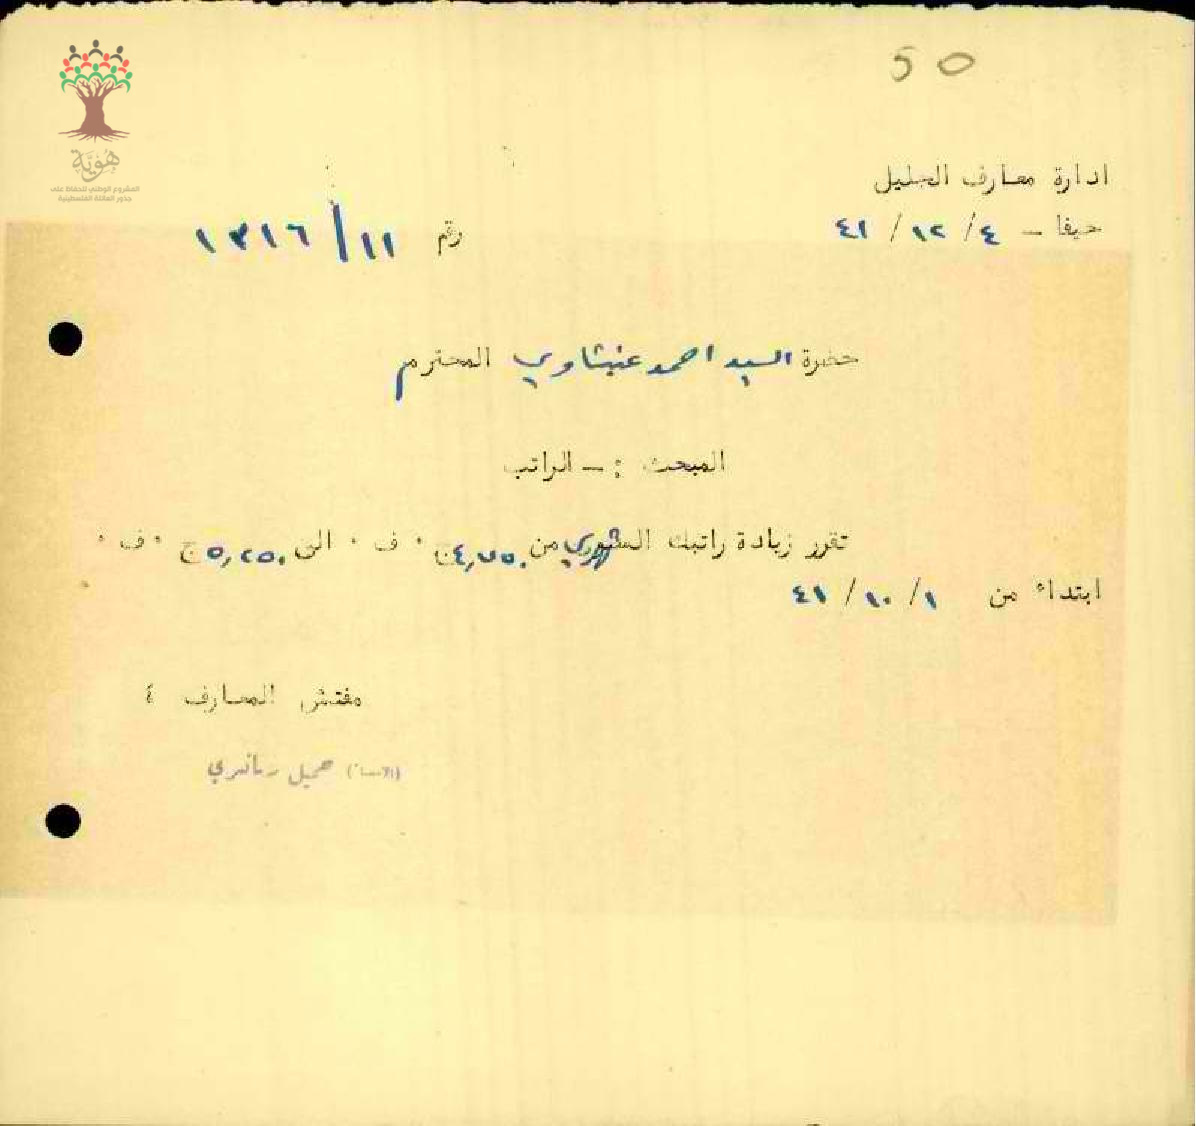 50
هوية
المشروع الوطني للحفاظ على
جذور العائلة الفلسطينية
ادارة معارف الجليل
حيفا – ٤ / ١٢ / ٤١
رقم ١١ / ١٣١٦
حضرة السيد احمد عنبتاوي المحترم
المبحث : – الراتب
تقرر زيادة راتبك الشهري من ٤,٧٥٠ ج ٠ ف ٠ الى ٥,٢٥٠ ج ٠ ف ٠
ابتداء من ١ / ١٠ / ٤١
مفتش المعارف
جميل